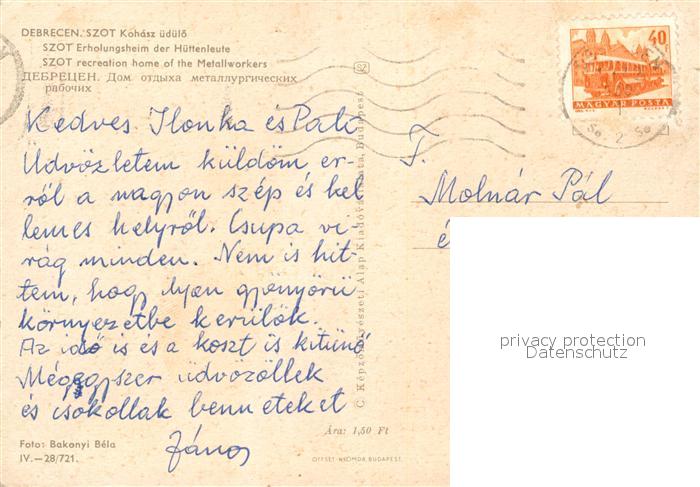 DEBRECEN. SZOT Kohász üdülő
SZOT Erholungsheim der Hüttenleute
SZOT recreation home of the Metallworkers
ДЕБРЕЦЕН. Дом отдыха металлургических
рабочих
Kedves Ilonka és Pali
Üdvözletem küldöm er-
ről a nagyon szép és kel
lemes helyről. Csupa vi-
rág minden. Nem is hit-
tem, hogy ilyen gyönyörű
környezetbe kerülök.
Az idő is és a koszt is kitünő
Mégegyszer üdvözöllek
és csokollak benneteket
János
Foto: Bakonyi Béla
IV.—28/721.
Ára: 1,50 Ft
OFFSET-NYOMDA, BUDAPEST
C Képzőművészeti Alap Kiadóvállalata, Budapest
40
MAGYAR POSTA
T.
Molnár Pál
é
privacy protection
Datenschutz